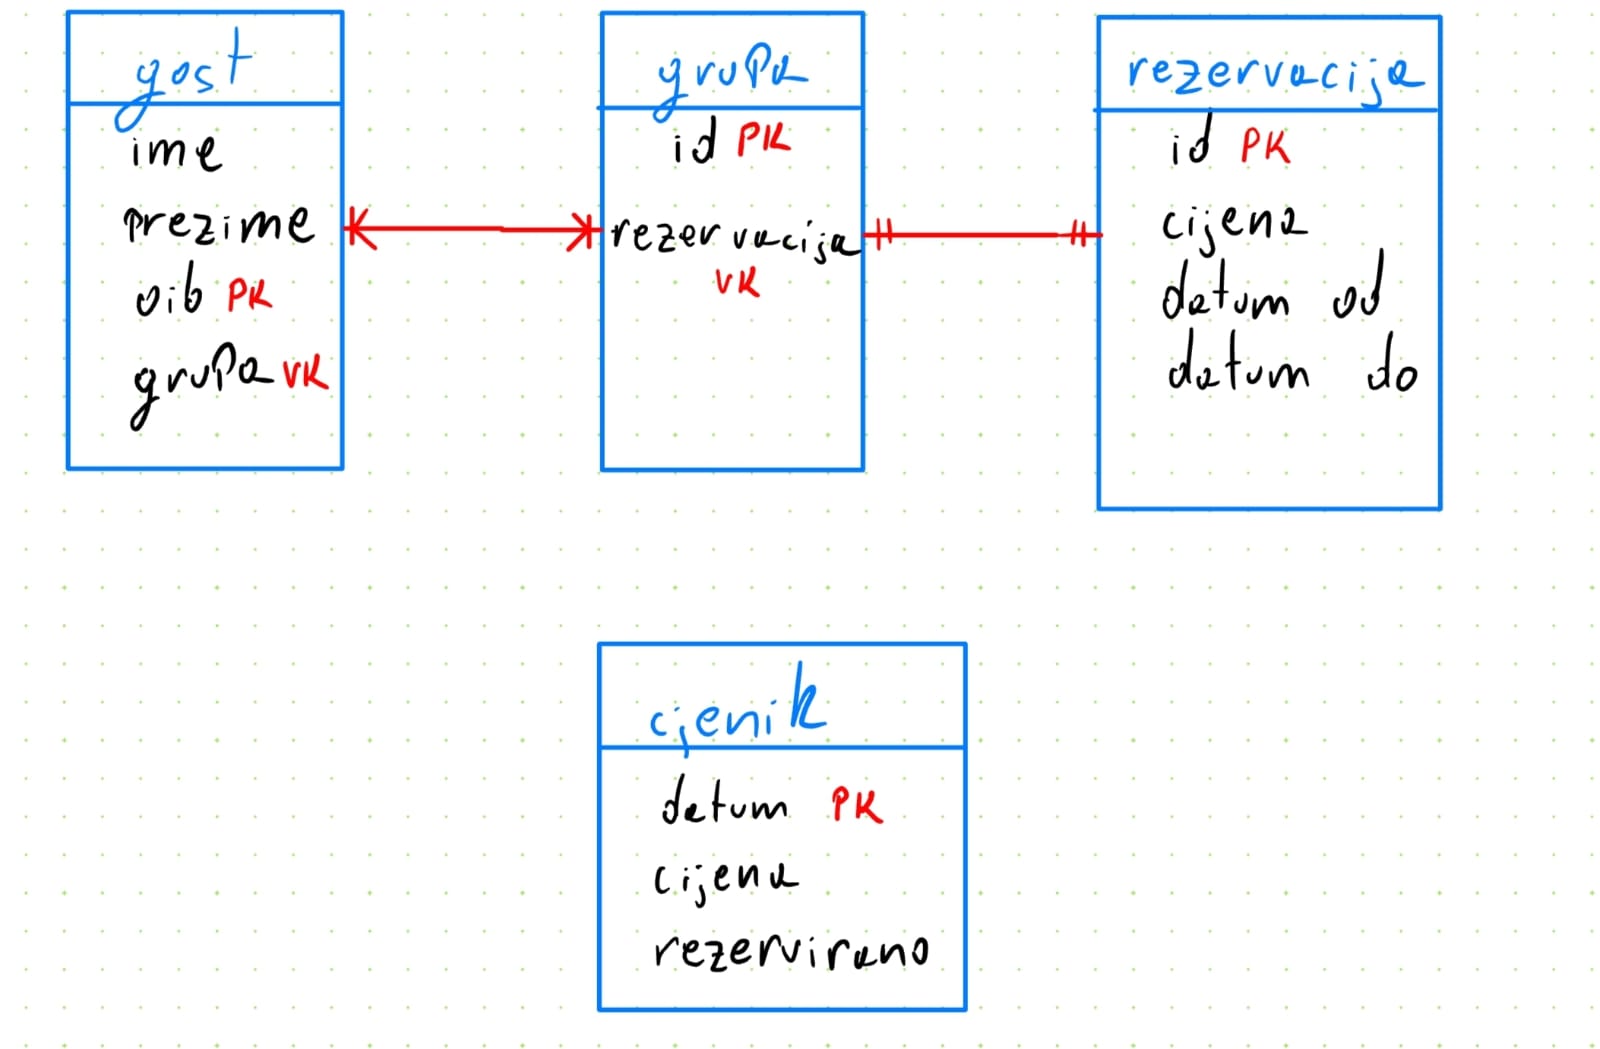 gost
ime
prezime
oib PK
grupa VK
grupa
id PK
rezervacija
VK
rezervacija
id PK
cijena
datum od
datum do
cjenik
datum PK
cijena
rezervirano